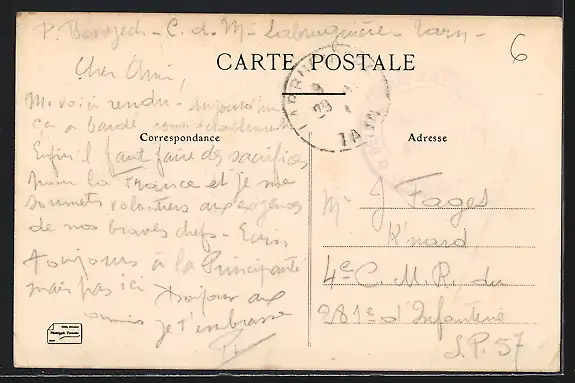 C. d. M. Labruguière - Tarn -
6
CARTE POSTALE
LABRUGUIÈRE
TARN
Cher Ami,
Me voici rendu - aujourd'hui
ça a bardé considérablement
Correspondance
Adresse
Enfin il faut faire des sacrifices
pour la France et je me
soumets volontiers aux exigences
de nos braves chefs - Ecris
toujours à la Principauté
mais pas ici
Bonjour aux
amis je t'embrasse
Mr J. Fages
K'nard
4e C. M. R. du
281e d'Infanterie
S. P. 57